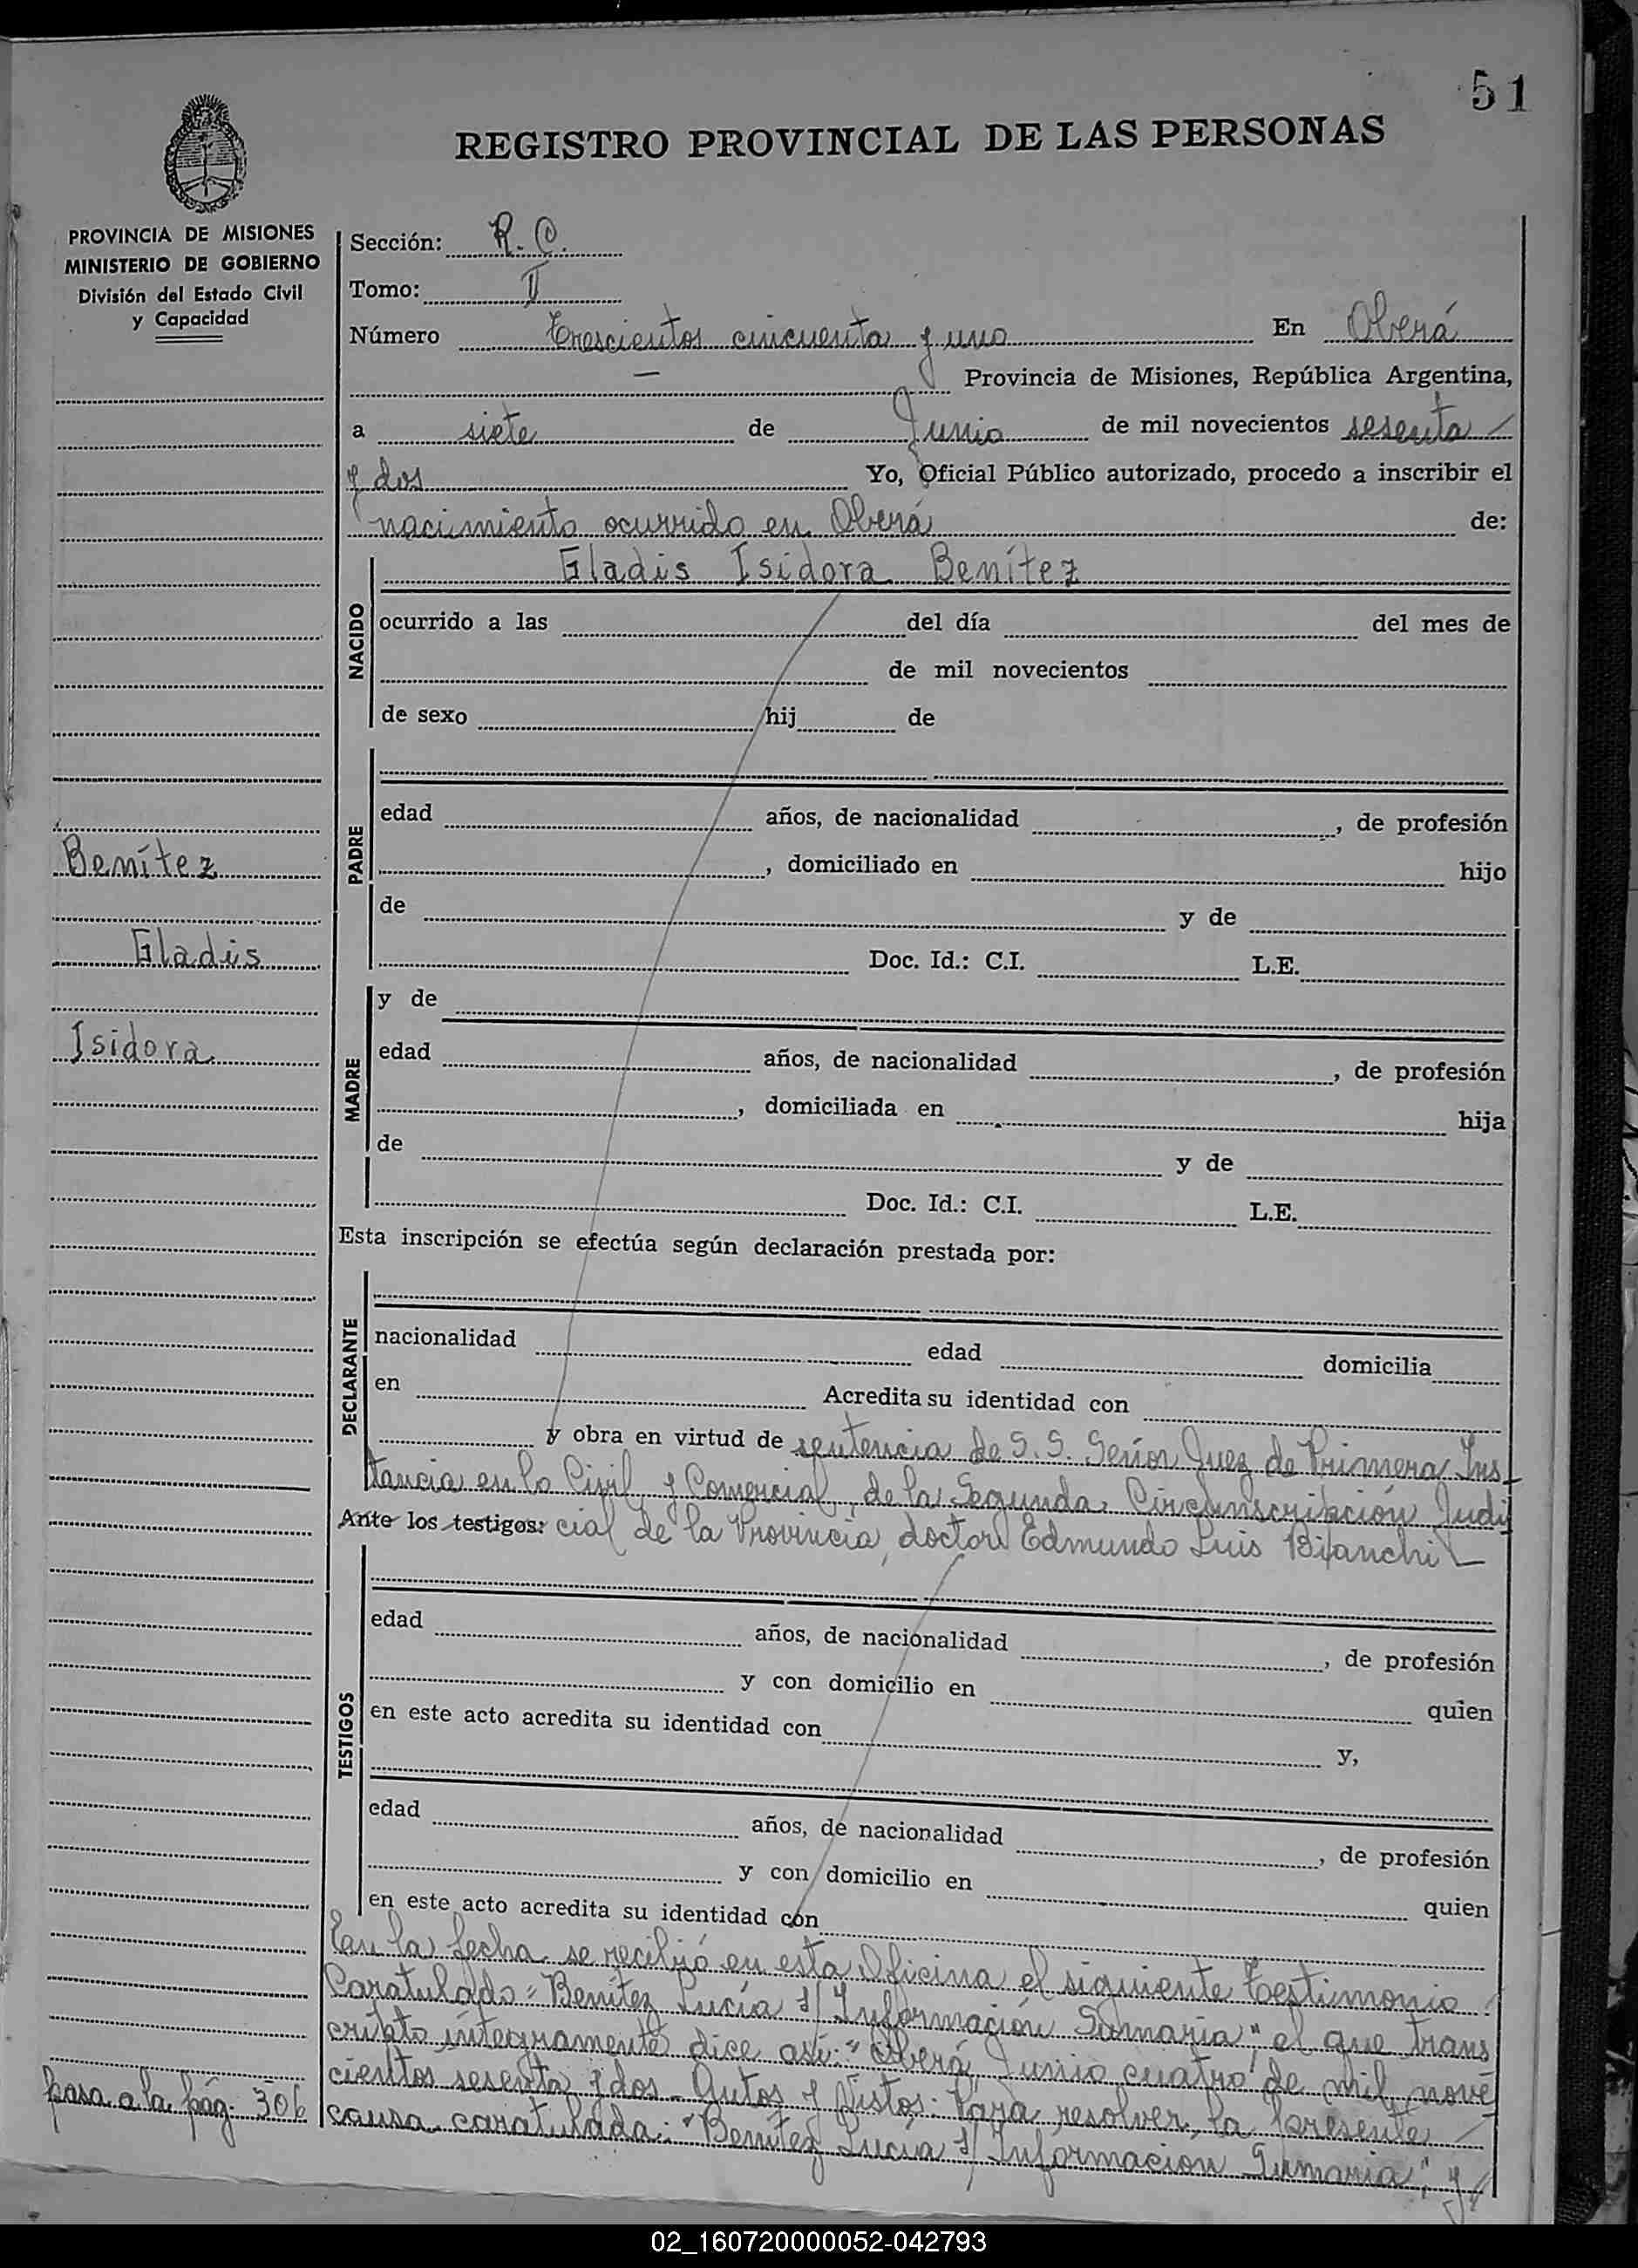 51
REGISTRO PROVINCIAL DE LAS PERSONAS
PROVINCIA DE MISIONES
MINISTERIO DE GOBIERNO
División del Estado Civil
y Capacidad
Sección: R. C.
Tomo: II
Número Trescientos cincuenta y uno En Oberá
Provincia de Misiones, República Argentina,
a siete de Junio de mil novecientos sesenta
y dos Yo, Oficial Público autorizado, procedo a inscribir el
nacimiento ocurrido en Oberá de:
NACIDO
Gladis Isidora Benítez
ocurrido a las del día del mes de
de mil novecientos
de sexo hij de
PADRE
edad años, de nacionalidad , de profesión
, domiciliado en hijo
de y de
Doc. Id.: C.I. L.E.
Benítez
Gladis
Isidora
MADRE
y de
edad años, de nacionalidad , de profesión
, domiciliada en hija
de y de
Doc. Id.: C.I. L.E.
Esta inscripción se efectúa según declaración prestada por:
DECLARANTE
nacionalidad edad domicilia
en Acredita su identidad con
y obra en virtud de sentencia de S. S. Señor Juez de Primera Ins
tancia en lo Civil y Comercial, de la Segunda Circunscripción Judi
Ante los testigos: cial de la Provincia, doctor Edmundo Luis Bianchi
TESTIGOS
edad años, de nacionalidad , de profesión
y con domicilio en quien
en este acto acredita su identidad con y,
edad años, de nacionalidad , de profesión
y con domicilio en quien
en este acto acredita su identidad con
En la fecha se recibió en esta Oficina el siguiente Testimonio
Caratulado: "Benítez Lucía s/ Información Sumaria", el que trans
cripto íntegramente dice así: "Oberá, Junio cuatro de mil nove
cientos sesenta y dos - Autos y Vistos: Para resolver la presente
causa caratulada: "Benítez Lucía s/ Información Sumaria", y
pasa a la pág. 306
02_160720000052-042793